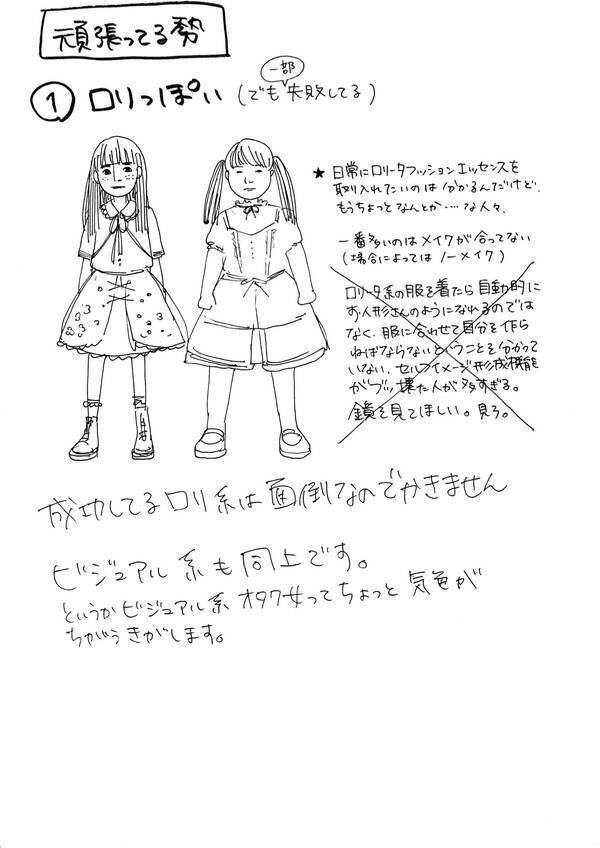 頑張ってる勢
① ロリっぽい (でも一部失敗してる)
★ 日常にロリータファッションエッセンスを
取り入れたいのは分かるんだけど、
もうちょっとなんとか……な人々、
一番多いのはメイクが合ってない
(場合によってはノーメイク)
ロリータ系の服を着たら自動的に
お人形さんのようになれるのでは
なく、服に合わせて自分を作ら
ねばならないということを分かって
いない、セルフイメージ形成機能
がブッ壊れた人が多すぎる。
鏡を見てほしい。見ろ。
成功してるロリ系は面倒なのでかきません
ビジュアル系も同上です。
というかビジュアル系オタク女ってちょっと気色が
ちがうきがします。